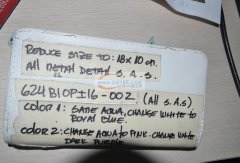 REDUCE SIZE TO: 18x10 cm.
All METAL DETAIL S.A.S.
624B10P±16-002 (All S.A.S)
COLOR 1: SAME AQUA, CHANGE WHITE TO
ROYAL BLUE.
COLOR 2: CHANGE AQUA TO PINK. CHANGE WHITE
DARK PURPLE